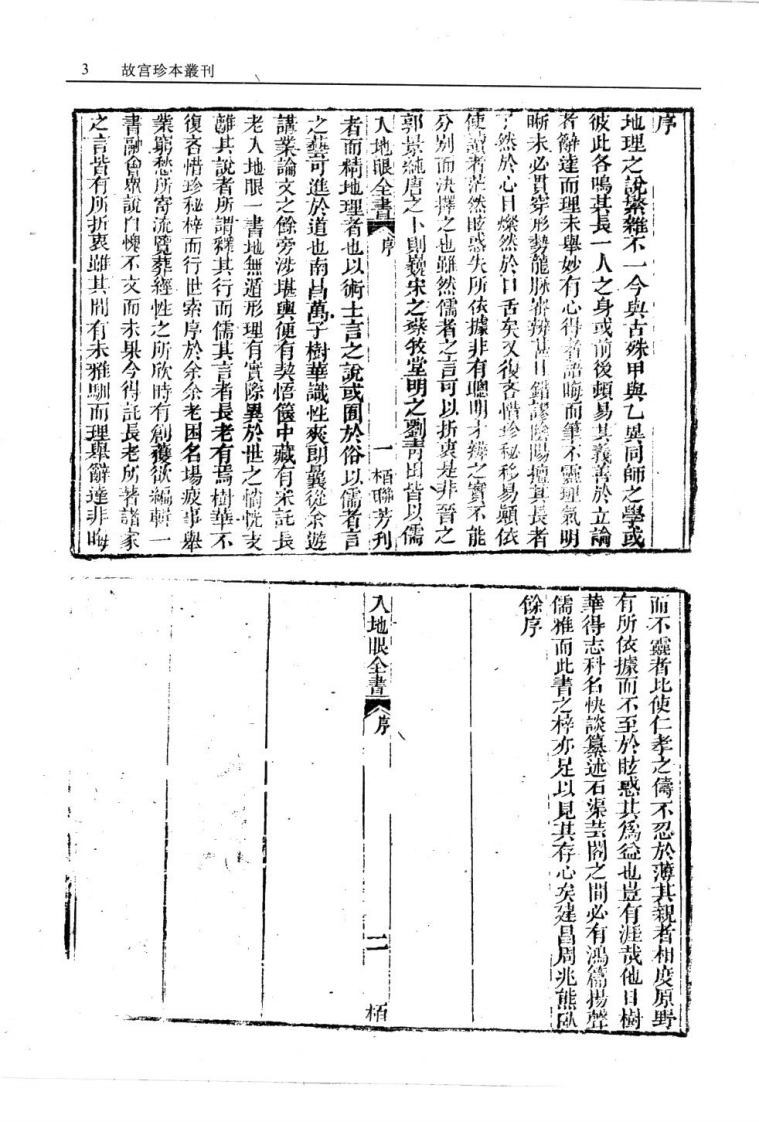 3　故宮珍本叢刊
序
地理之說繁雜不一今與古殊甲與乙異同師之學或
彼此各鳴其長一人之身或前後頓易其義善於立論
者辭達而理未舉妙有心得者語晦而筆不靈理氣明
晰未必貫穿形勢龍脉審辨甚且錯謬陰陽擅其長者
了然於心目燦然於口舌矣又復吝惜珍秘移易顛依
使讀者茫然眩惑失所依據非有聰明才辨之實不能
分別而決擇之也雖然儒者之言可以折衷是非晉之
郭景純唐之卜則巍宋之蔡牧堂明之劉青田皆以儒
入地眼全書　序　一　栢聯芳刋
者而精地理者也以術士言之說或囿於俗以儒者言
之藝可進於道也南昌萬子樹華識性爽朗曩從余遊
講業論文之餘旁涉堪輿便有契悟篋中藏有宋託長
老入地眼一書地無遁形理有實際異於世之惝恍支
離其說者所謂釋其行而儒其言者長老有焉樹華不
復吝惜珍秘梓而行世索序於余余老困名場疲事舉
業窮愁所寄流覽葬經性之所欣時有創獲欲編輯一
書融會眾說自愧不文而未果今得託長老所著諸家
之言皆有所折衷雖其間有未雅馴而理舉辭達非晦
而不靈者比使仁孝之儔不忍於薄其親者相度原野
有所依據而不至於眩惑其爲益也豈有涯哉他日樹
華得志科名快談纂述石渠芸閣之間必有鴻篇揚聲
儒雅而此書之梓亦足以見其存心矣建昌周兆熊臥
餘序
入地眼全書　序　二　栢